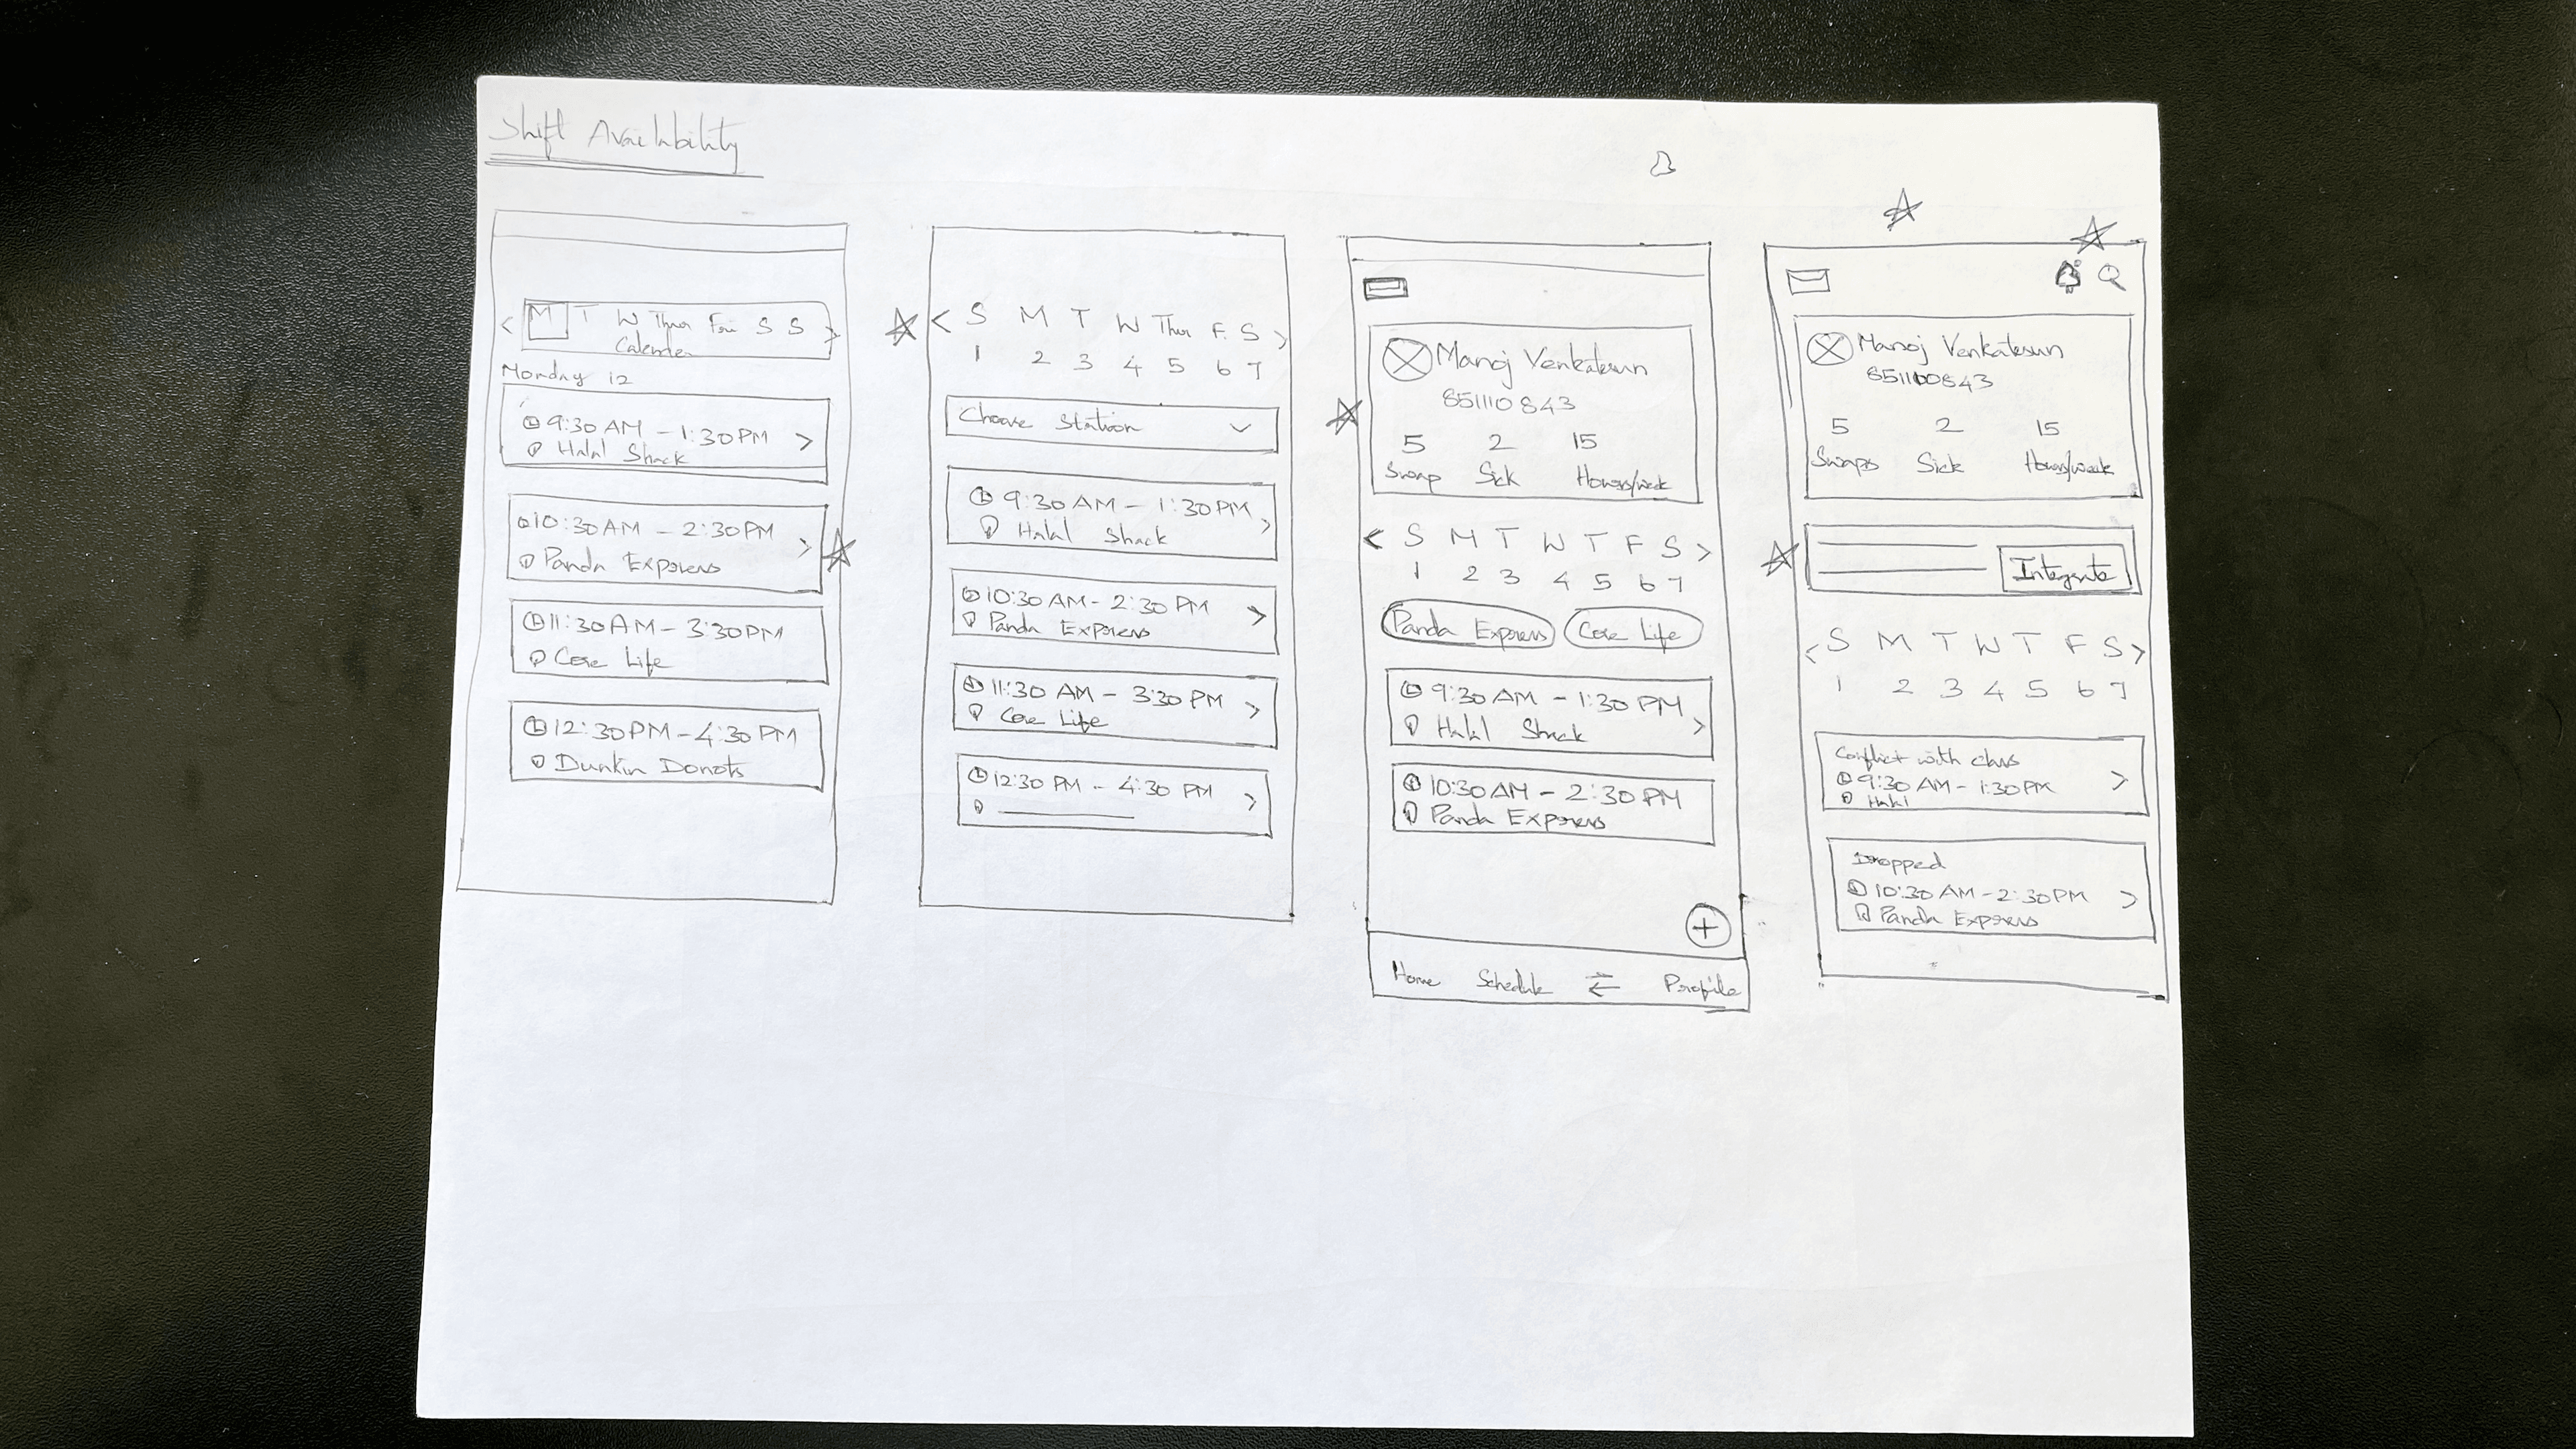 Shift Availability
< M T W Thur Fri S S >
Calender
Monday 12
9:30 AM - 1:30 PM >
Halal Shack
10:30 AM - 2:30 PM >
Panda Express
11:30 AM - 3:30 PM
Core Life
12:30 PM - 4:30 PM
Dunkin Donots
< S M T W Thur F. S >
1 2 3 4 5 6 7
Choose Station
9:30 AM - 1:30 PM >
Halal Shack
10:30 AM - 2:30 PM >
Panda Express
11:30 AM - 3:30 PM >
Core Life
12:30 PM - 4:30 PM >
Manoj Venkatesan
851110843
5 2 15
Swap Sick Hours/week
< S M T W T F S >
1 2 3 4 5 6 7
Panda Express Core Life
9:30 AM - 1:30 PM >
Halal Shack
10:30 AM - 2:30 PM
Panda Express
+
Home Schedule Profile
Manoj Venkatesan
5 2 15
Swaps Sick Hours/week
Integrate
< S M T W T F S >
1 2 3 4 5 6 7
Conflict with class
9:30 AM - 1:30 PM >
Halal
Dropped
10:30 AM - 2:30 PM >
Panda Express